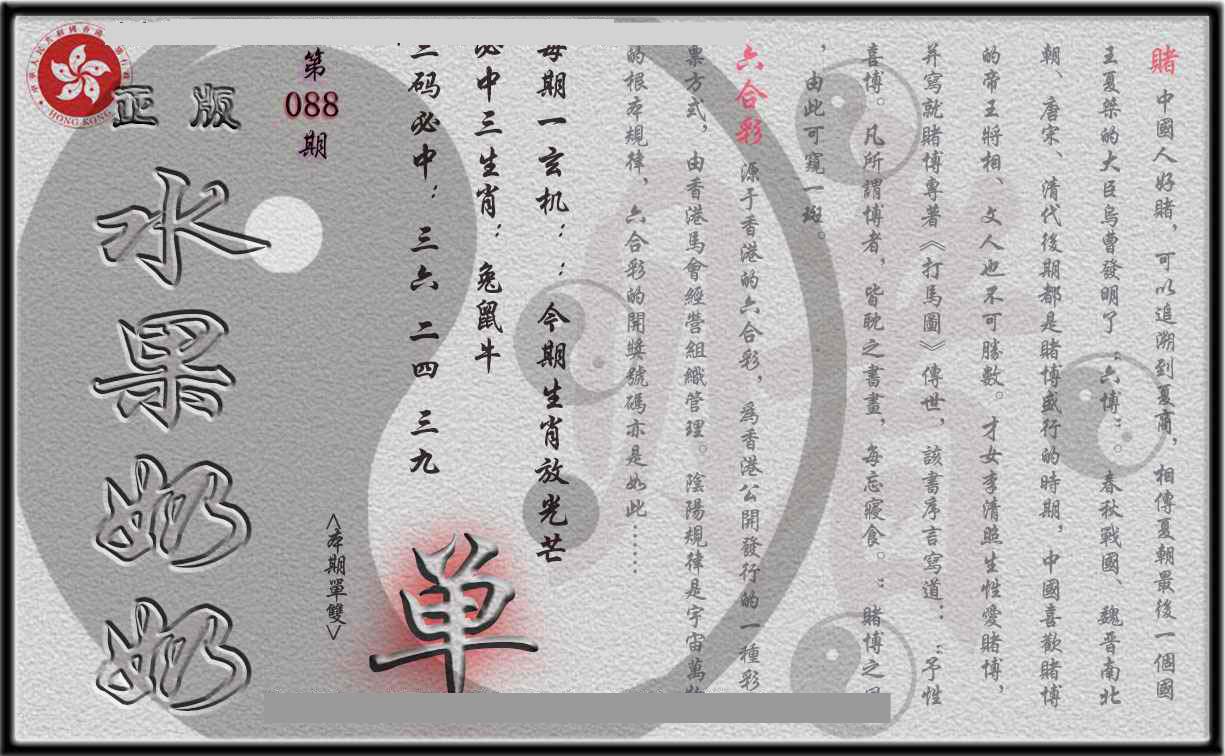 賭 中國人好賭，可以追溯到夏商，相傳夏朝最後一個國
王夏桀的大臣烏曹發明了“六博”。春秋戰國、魏晉南北
朝、唐宋、清代後期都是賭博盛行的時期，中國喜歡賭博
的帝王將相、文人也不可勝數。才女李清照生性愛賭博，
并寫就賭博專著《打馬圖》傳世，該書序言寫道：“予性
喜博。凡所謂博者，皆耽之書畫，每忘寢食。”賭博之風
，由此可窺一斑。
六合彩 源于香港的六合彩，為香港公開發行的一種彩
票方式，由香港馬會經營組織管理。陰陽規律是宇宙萬物
的根本規律、六合彩的開獎號碼亦是如此……
每期一玄机：：今期生肖放光芒
必中三生肖：兔鼠牛
三码必中：三六 二四 三九
单
<本期單雙>
第
088
期
正版
水果奶奶
HONG KONG